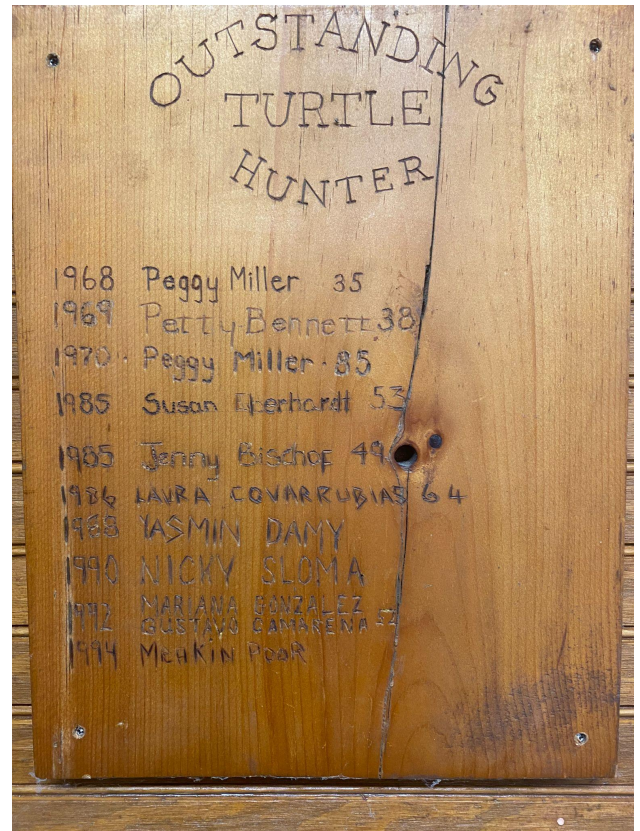 OUTSTANDING
TURTLE
HUNTER
1968 Peggy Miller 35
1969 Petty Bennett 38
1970 Peggy Miller 85
1985 Susan Eberhardt 53
1985 Jenny Bischof 49
1986 LAURA COVARRUBIAS 64
1988 YASMIN DAMY
1990 NICKY SLOMA
1992 MARIANA GONZALEZ
GUSTAVO CAMARENA 52
1994 MEAKIN POOR